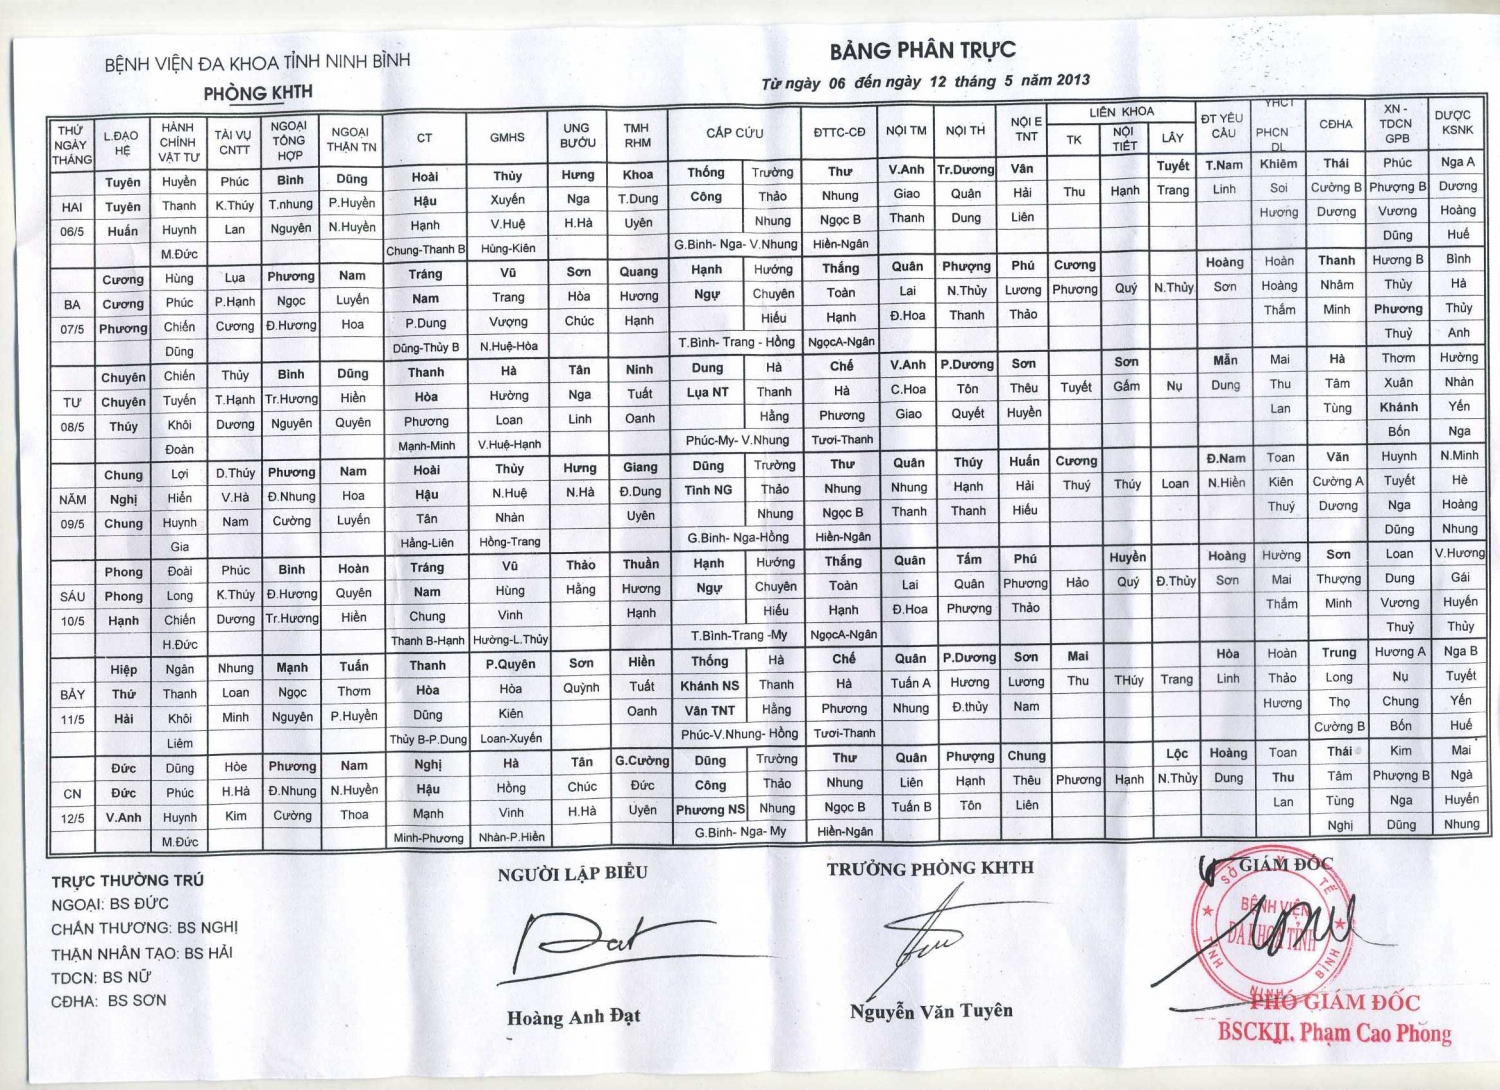 BỆNH VIỆN ĐA KHOA TỈNH NINH BÌNH
PHÒNG KHTH
BẢNG PHÂN TRỰC
Từ ngày 06 đến ngày 12 tháng 5 năm 2013
THỨ NGÀY THÁNG L.ĐẠO HỆ HÀNH CHÍNH VẬT TƯ TÀI VỤ CNTT NGOẠI TỔNG HỢP NGOẠI THẬN TN CT GMHS UNG BƯỚU TMH RHM CẤP CỨU ĐTTC-CĐ NỘI TM NỘI TH NỘI E TNT LIÊN KHOA TK NỘI TIẾT LÂY ĐT YÊU CẦU YHCT PHCN DL CĐHA XN - TDCN GPB DƯỢC KSNK
Tuyên Huyền Phúc Bình Dũng Hoài Thùy Hưng Khoa Thống Trường Thư V.Anh Tr.Dương Vân Tuyết T.Nam Khiêm Thái Phúc Nga A
HAI Tuyên Thanh K.Thúy T.nhung P.Huyền Hậu Xuyến Nga T.Dung Công Thảo Nhung Giao Quân Hải Thu Hạnh Trang Linh Soi Cường B Phượng B Dương
06/5 Huấn Huynh Lan Nguyên N.Huyền Hạnh V.Huệ H.Hà Uyên Nhung Ngọc B Thanh Dung Liên Hương Dương Vương Hoàng
M.Đức Chung-Thanh B Hùng-Kiên G.Binh- Nga- V.Nhung Hiền-Ngân Dũng Huế
Cương Hùng Lụa Phương Nam Tráng Vũ Sơn Quang Hạnh Hướng Thắng Quân Phượng Phú Cương Hoàng Hoàn Thanh Hương B Bình
BA Cương Phúc P.Hạnh Ngọc Luyến Nam Trang Hòa Hương Ngự Chuyên Toàn Lai N.Thủy Lương Phương Quý N.Thủy Sơn Hoàng Nhâm Thủy Hà
07/5 Phương Chiến Cương Đ.Hương Hoa P.Dung Vượng Chúc Hạnh Hiếu Hạnh Đ.Hoa Thanh Thảo Thắm Minh Phương Thủy
Dũng Dũng-Thủy B N.Huệ-Hòa T.Bình- Trang - Hồng NgọcA-Ngân Thuỷ Anh
Chuyên Chiến Thủy Bình Dũng Thanh Hà Tân Ninh Dung Hà Chế V.Anh P.Dương Sơn Sơn Mẫn Mai Hà Thơm Hường
TƯ Chuyên Tuyến T.Hạnh Tr.Hương Hiền Hòa Hường Nga Tuất Lụa NT Thanh Hà C.Hoa Tôn Thêu Tuyết Gấm Nụ Dung Thu Tâm Xuân Nhàn
08/5 Thúy Khôi Dương Nguyên Quyên Phương Loan Linh Oanh Hằng Phương Giao Quyết Huyền Lan Tùng Khánh Yến
Đoàn Mạnh-Minh V.Huệ-Hạnh Phúc-My- V.Nhung Tươi-Thanh Bốn Nga
Chung Lợi D.Thúy Phương Nam Hoài Thùy Hưng Giang Dũng Trường Thư Quân Thúy Huấn Cương Đ.Nam Toan Văn Huynh N.Minh
NĂM Nghị Hiến V.Hà Đ.Nhung Hoa Hậu N.Huệ N.Hà Đ.Dung Tinh NG Thảo Nhung Nhung Hạnh Hải Thuý Thúy Loan N.Hiền Kiên Cường A Tuyết Hè
09/5 Chung Huynh Nam Cường Luyến Tân Nhàn Uyên Nhung Ngọc B Thanh Thanh Hiếu Thuý Dương Nga Hoàng
Gia Hằng-Liên Hồng-Trang G.Binh- Nga-Hồng Hiền-Ngân Dũng Nhung
Phong Đoài Phúc Bình Hoàn Tráng Vũ Thảo Thuần Hạnh Hướng Thắng Quân Tấm Phú Huyền Hoàng Hường Sơn Loan V.Hương
SÁU Phong Long K.Thúy Đ.Hương Quyên Nam Hùng Hằng Hương Ngự Chuyên Toàn Lai Quân Phương Hảo Quý Đ.Thủy Sơn Mai Thượng Dung Gái
10/5 Hạnh Chiến Dương Tr.Hương Hiền Chung Vinh Hạnh Hiếu Hạnh Đ.Hoa Phượng Thảo Thắm Minh Vương Huyến
H.Đức Thanh B-Hạnh Hường-L.Thủy T.Bình-Trang -My NgọcA-Ngân Thuỷ Thủy
Hiệp Ngân Nhung Mạnh Tuấn Thanh P.Quyên Sơn Hiền Thống Hà Chế Quân P.Dương Sơn Mai Hòa Hoàn Trung Hương A Nga B
BẢY Thứ Thanh Loan Ngọc Thơm Hòa Hòa Quỳnh Tuất Khánh NS Thanh Hà Tuấn A Hương Lương Thu THúy Trang Linh Thảo Long Nụ Tuyết
11/5 Hải Khôi Minh Nguyên P.Huyền Dũng Kiên Oanh Vân TNT Hằng Phương Nhung Đ.thủy Nam Hương Thọ Chung Yến
Liêm Thủy B-P.Dung Loan-Xuyến Phúc-V.Nhung- Hồng Tươi-Thanh Cường B Bốn Huế
Đức Dũng Hòe Phương Nam Nghị Hà Tân G.Cường Dũng Trường Thư Quân Phượng Chung Lộc Hoàng Toan Thái Kim Mai
CN Đức Phúc H.Hà Đ.Nhung N.Huyền Hậu Hồng Chúc Đức Công Thảo Nhung Liên Hạnh Thêu Phương Hạnh N.Thủy Dung Thu Tâm Phượng B Ngà
12/5 V.Anh Huynh Kim Cường Thoa Mạnh Vinh H.Hà Uyên Phương NS Nhung Ngọc B Tuấn B Tôn Liên Lan Tùng Nga Huyến
M.Đức Minh-Phương Nhàn-P.Hiền G.Binh- Nga- My Hiền-Ngân Nghị Dũng Nhung
TRỰC THƯỜNG TRÚ
NGOẠI: BS ĐỨC
CHẤN THƯƠNG: BS NGHỊ
THẬN NHÂN TẠO: BS HẢI
TDCN: BS NỮ
CĐHA: BS SƠN
NGƯỜI LẬP BIỂU
Đạt
Hoàng Anh Đạt
TRƯỞNG PHÒNG KHTH
Nguyễn Văn Tuyên
GIÁM ĐỐC
SỞ Y TẾ
BỆNH VIỆN
ĐA KHOA TỈNH
TỈNH NINH BÌNH
PHÓ GIÁM ĐỐC
BSCKII. Phạm Cao Phong